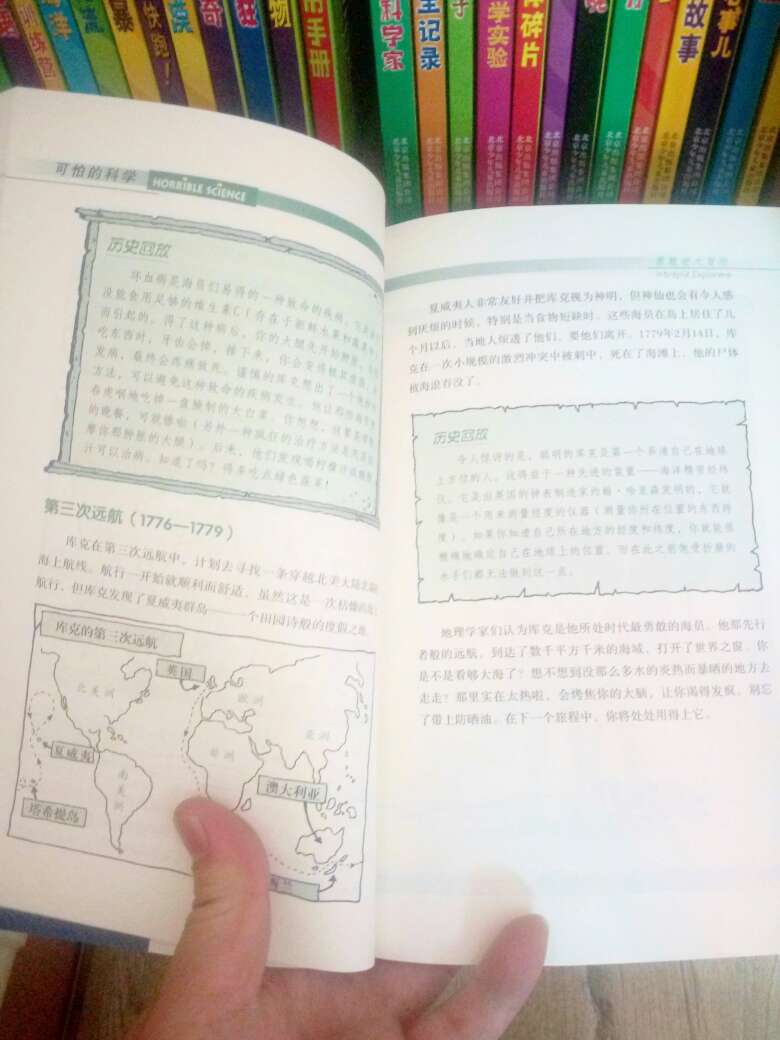 训练营
流
暴
铁跑！
奇
狂
物
手册
科学家
记录
子
学实验
碎片
故事
事儿
可怕的科学
HORRIBLE SCIENCE
历史回放
坏血病是海员们易得的一种致命的疾病，
没能食用足够的维生素C（存在于新鲜水果和蔬菜中）
而引起的。得了这种病后，你的大腿先开始肿胀，
吃东西时，牙齿会掉，掉下来，你会变得
发痛，最终会疼痛致死。谨慎的库克想出了一个
方法，可以避免这种致命的疾病发生，
吞虎咽地吃掉一盘腌制的大白菜。你想想，
的晚餐，可就惨啦（另外一种疯狂的治疗方法是
摩你那肿胀的大腿）。后来，他们发现喝柠檬
汁可以治病。知道了吗？得多吃点绿色蔬菜！
第三次远航（1776—1779）
库克在第三次远航中，计划去寻找一条穿越北美大陆
海上航线。航行一开始就顺利而舒适。虽然这是一次枯燥的
航行，但库克发现了夏威夷群岛——一个田园诗般的度假之地
库克的第三次远航
英国
北美洲
欧洲
亚洲
非洲
夏威夷
南美洲
澳大利亚
塔希提岛
Intrepid Explorers
夏威夷人非常友好并把库克视为神明，但神仙也会有令人感
到厌烦的时候，特别是当食物短缺时。这些海员在岛上居住了几
个月以后，当地人烦透了他们，要他们离开。1779年2月14日，库
克在一次小规模的激烈冲突中被刺中，死在了海滩上，他的尸体
被海浪吞没了。
历史回放
令人惊讶的是，聪明的库克是第一个弄清自己在地球
上方位的人。这得益于一种先进的装置——海洋精密经纬
仪。它是由英国的钟表制造家约翰·哈里森发明的，它就
像是一个用来测量经度的仪器（测量你所在位置的东西跨
度）。如果你知道自己所在地方的经度和纬度，你就能很
精确地确定自己在地球上的位置，而在此之前饱受折磨的
水手们都无法做到这一点。
地理学家们认为库克是他所处时代最勇敢的海员。他那先行
者般的远航，到达了数千平方千米的海域，打开了世界之窗。你
是不是看够大海了？想不想到没那么多水的炎热而暴晒的地方去
走走？那里实在太热啦，会烤焦你的大脑，让你渴得发疯，别忘
了带上防晒油。在下一个旅程中，你将处处用得上它。